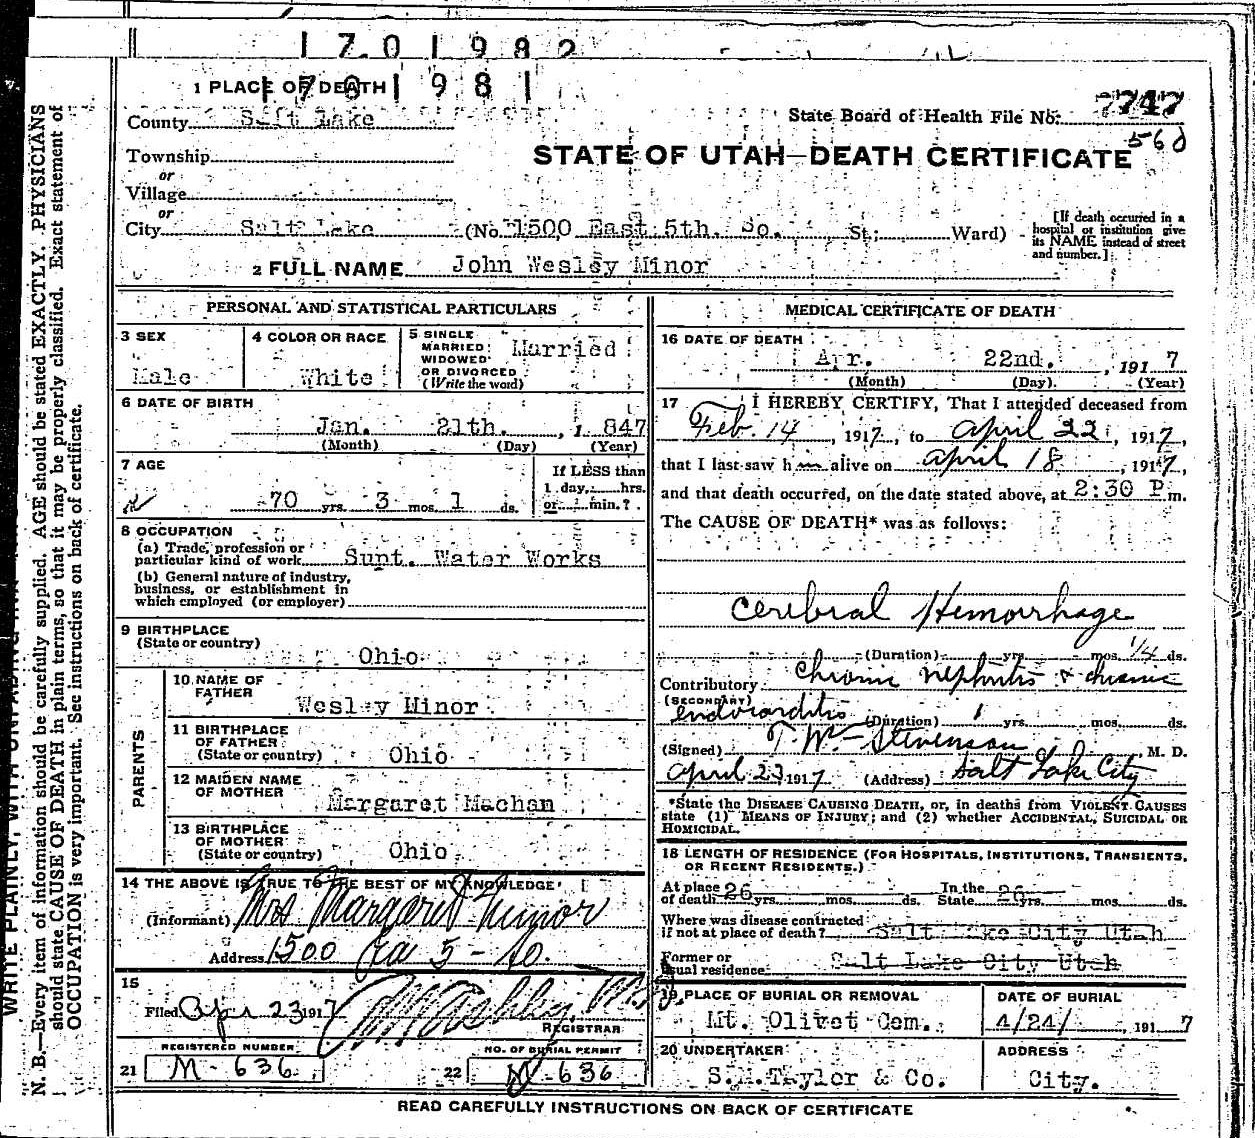 1701982
1701981
1 PLACE OF DEATH
County Salt Lake
State Board of Health File No. 7747
560
Township
or
Village
or
STATE OF UTAH—DEATH CERTIFICATE
City Salt Lake (No. 1500 East 5th. So. St; Ward)
[If death occurred in a hospital or institution give its NAME instead of street and number.]
2 FULL NAME John Wesley Minor
PERSONAL AND STATISTICAL PARTICULARS
3 SEX
Male
4 COLOR OR RACE
White
5 SINGLE
MARRIED
WIDOWED
OR DIVORCED
(Write the word)
Married
6 DATE OF BIRTH
Jan. 21th. , 1 847
(Month) (Day) (Year)
7 AGE
70 yrs. 3 mos. 1 ds.
If LESS than
1 day, hrs.
or min.?
8 OCCUPATION
(a) Trade, profession or
particular kind of work Supt. Water Works
(b) General nature of industry,
business, or establishment in
which employed (or employer)
9 BIRTHPLACE
(State or country)
Ohio
PARENTS
10 NAME OF
FATHER
Wesley Minor
11 BIRTHPLACE
OF FATHER
(State or country) Ohio
12 MAIDEN NAME
OF MOTHER
Margaret Machan
13 BIRTHPLACE
OF MOTHER
(State or country) Ohio
14 THE ABOVE IS TRUE TO THE BEST OF MY KNOWLEDGE
(Informant) Mrs Margaret Minor
Address 1500 Ea 5 - So.
15
Filed Apr 23 1917
REGISTRAR
REGISTERED NUMBER
21 M - 636
NO. OF BURIAL PERMIT
22 M - 636
MEDICAL CERTIFICATE OF DEATH
16 DATE OF DEATH
Apr. 22nd. , 191 7
(Month) (Day) (Year)
17 I HEREBY CERTIFY, That I attended deceased from
Feb. 14 , 1917, to April 22 , 1917,
that I last saw him alive on April 18 , 1917,
and that death occurred, on the date stated above, at 2:30 P.m.
The CAUSE OF DEATH* was as follows:
Cerebral Hemorrhage
(Duration) yrs. mos. 1/4 ds.
Contributory Chronic nephritis & chronic
(SECONDARY)
endocarditis (Duration) 1 yrs. mos. ds.
(Signed) T. W. Stevenson , M. D.
April 23 1917 (Address) Salt Lake City
*State the DISEASE CAUSING DEATH, or, in deaths from VIOLENT CAUSES
state (1) MEANS OF INJURY; and (2) whether ACCIDENTAL, SUICIDAL OR
HOMICIDAL.
18 LENGTH OF RESIDENCE (FOR HOSPITALS, INSTITUTIONS, TRANSIENTS,
OR RECENT RESIDENTS.)
At place
of death 26 yrs. mos. ds. In the
State 26 yrs. mos. ds.
Where was disease contracted
if not at place of death? Salt Lake City Utah
Former or
usual residence Salt Lake City Utah
19 PLACE OF BURIAL OR REMOVAL
Mt. Olivet Cem.
DATE OF BURIAL
4/24/ , 191 7
20 UNDERTAKER
S.M.Taylor & Co.
ADDRESS
City.
READ CAREFULLY INSTRUCTIONS ON BACK OF CERTIFICATE
WRITE PLAINLY, WITH UNFADING INK
N. B.—Every item of information should be carefully supplied. AGE should be stated EXACTLY. PHYSICIANS
should state CAUSE OF DEATH in plain terms, so that it may be properly classified. Exact statement of
OCCUPATION is very important. See instructions on back of certificate.